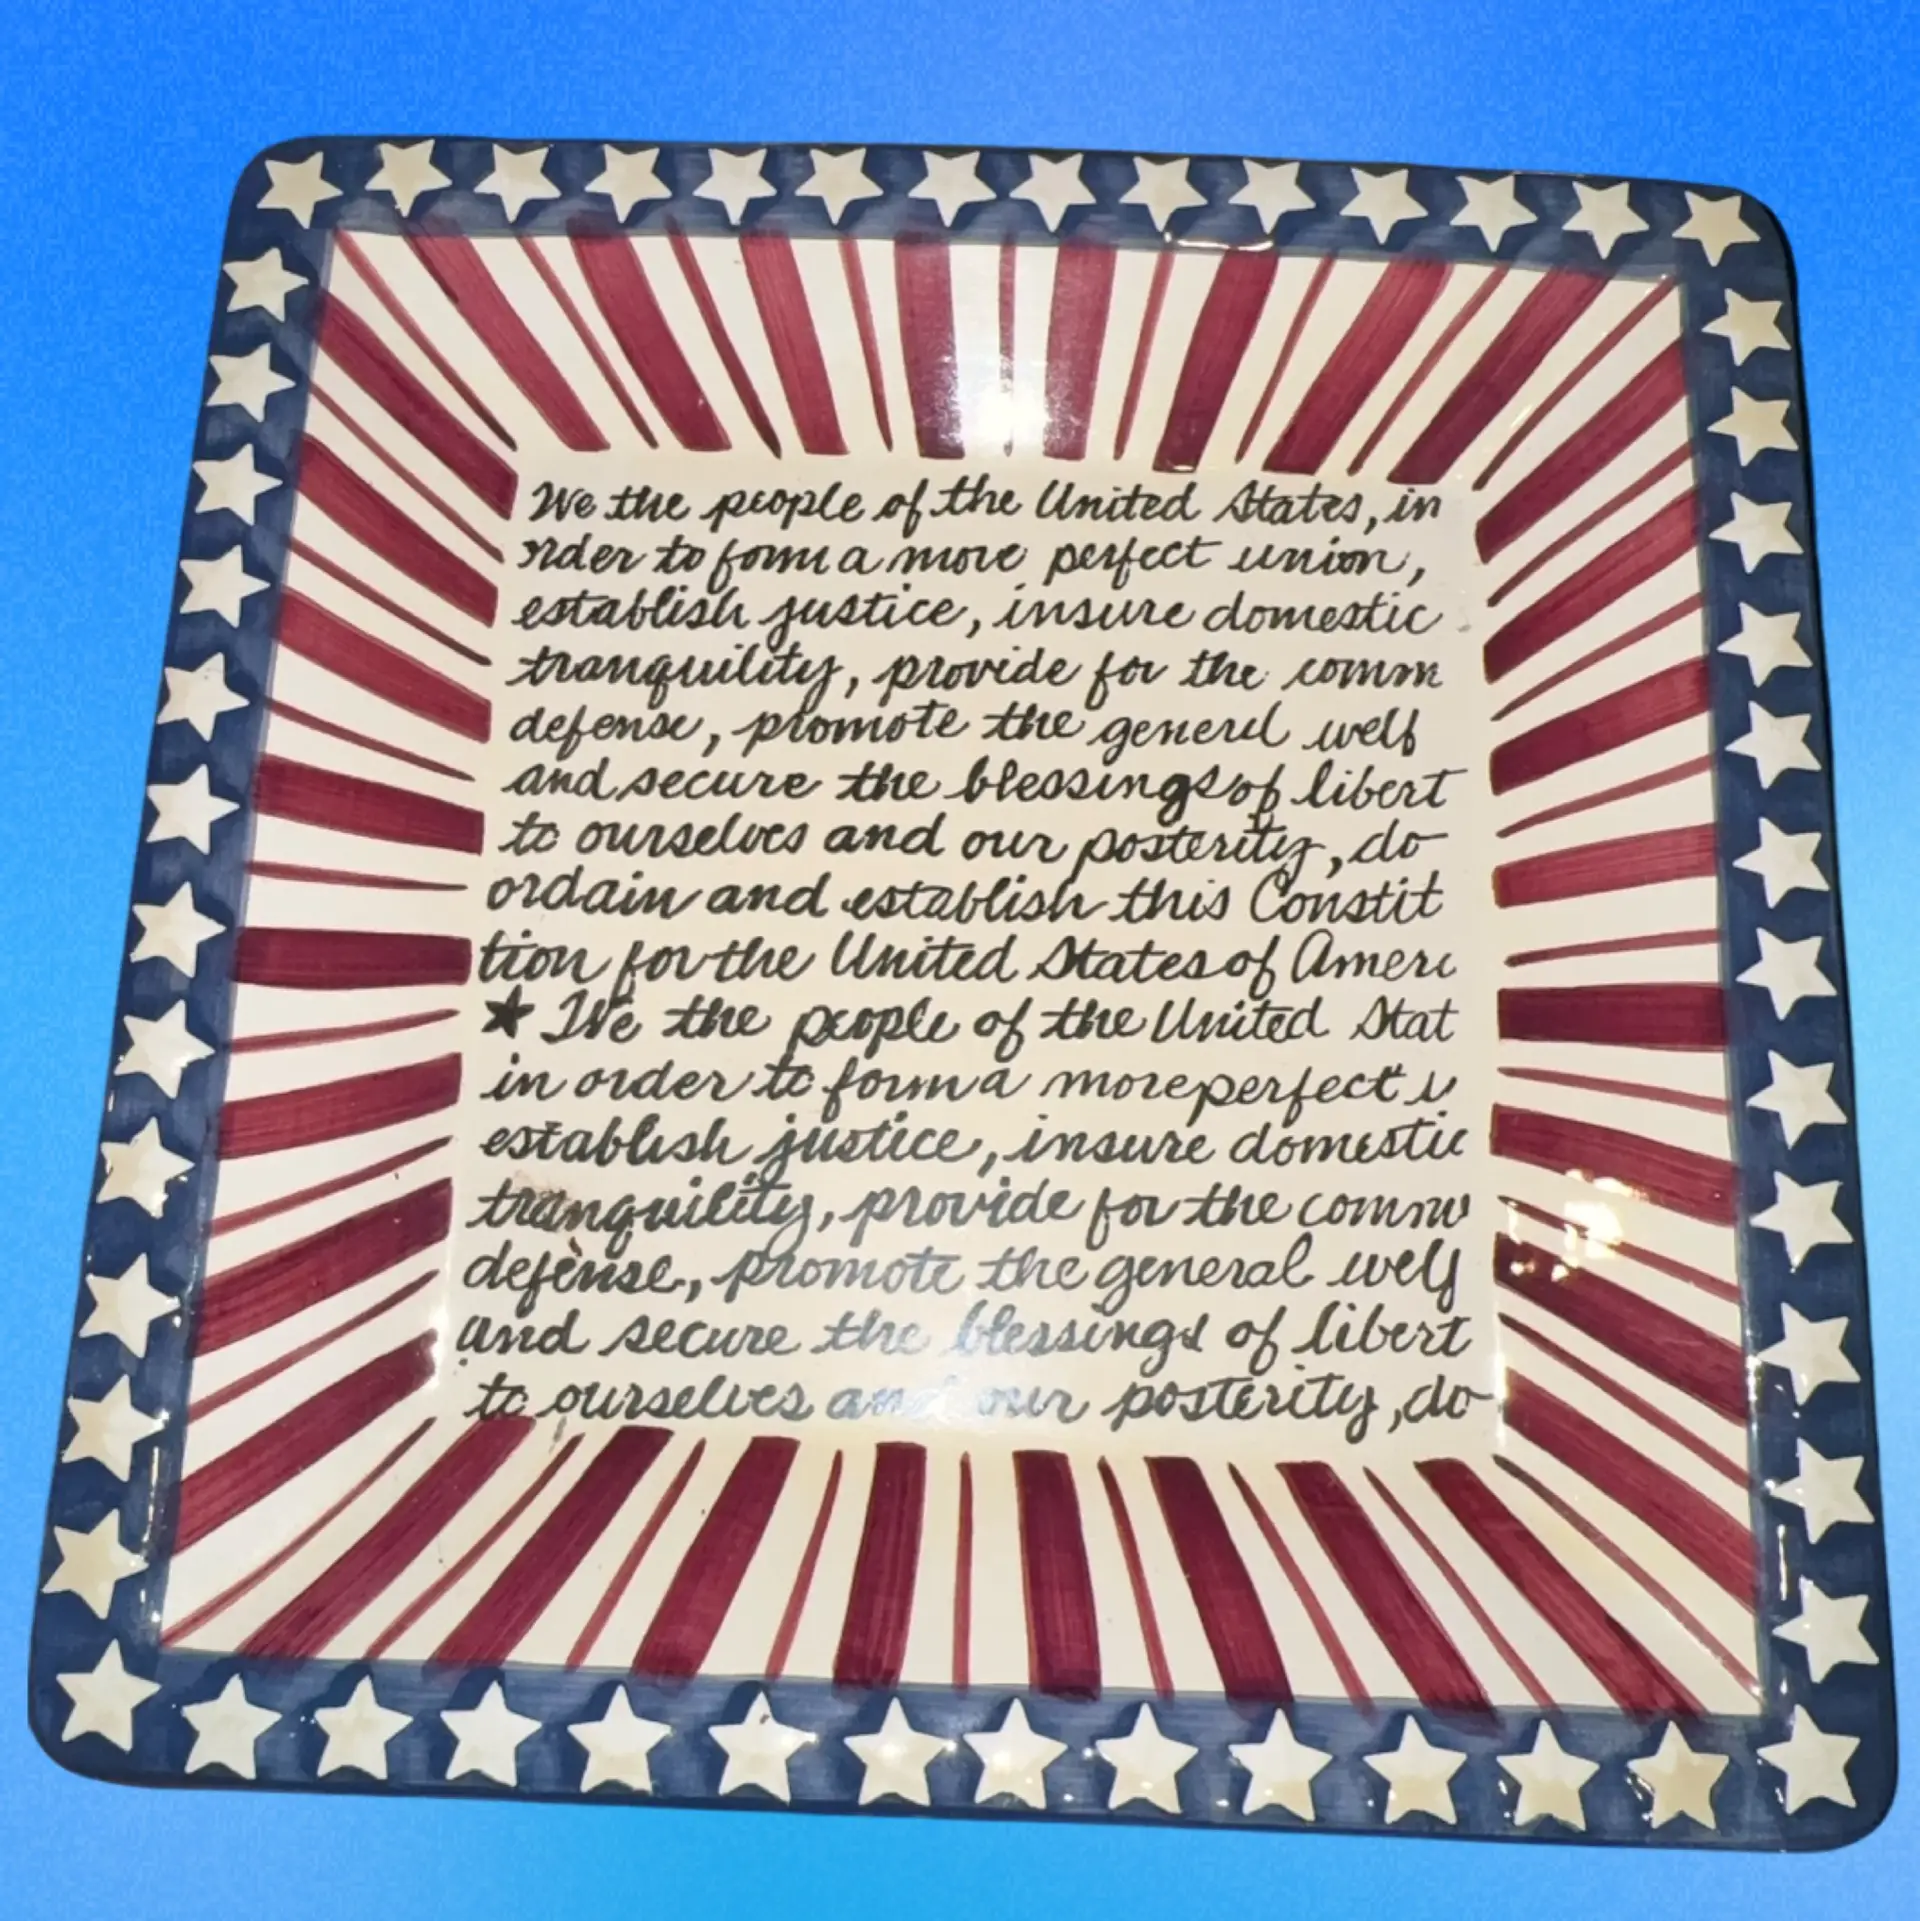 We the people of the United States, in
rder to form a more perfect union,
establish justice, insure domestic
tranquility, provide for the comm
defense, promote the general welf
and secure the blessings of libert
to ourselves and our posterity, do
ordain and establish this Constit
tion for the United States of Ameri
★ We the people of the United Stat
in order to form a more perfect u
establish justice, insure domestic
tranquility, provide for the comm
defense, promote the general welf
and secure the blessings of libert
to ourselves and our posterity, do